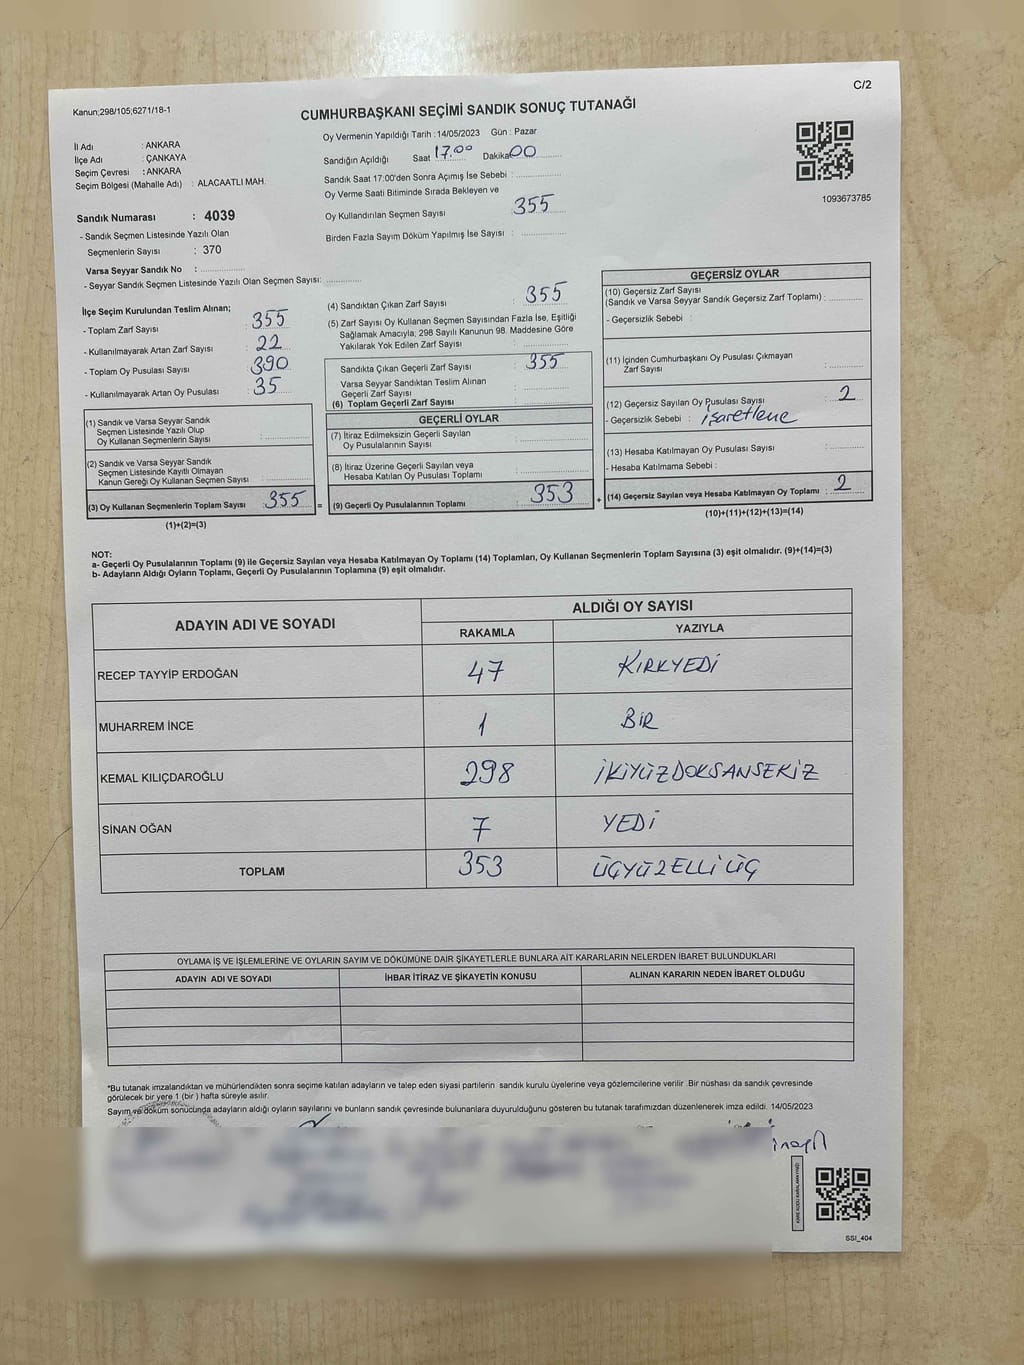 C/2
Kanun;298/105;6271/18-1
CUMHURBAŞKANI SEÇİMİ SANDIK SONUÇ TUTANAĞI
İl Adı : ANKARA
İlçe Adı : ÇANKAYA
Seçim Çevresi : ANKARA
Seçim Bölgesi (Mahalle Adı) : ALACAATLI MAH.
Oy Vermenin Yapıldığı Tarih :14/05/2023 Gün : Pazar
Sandığın Açıldığı Saat 17.00 Dakika 00
Sandık Saat 17:00'den Sonra Açımış İse Sebebi :
Oy Verme Saati Bitiminde Sırada Bekleyen ve
Oy Kullandırılan Seçmen Sayısı 355
Birden Fazla Sayım Döküm Yapılmış İse Sayısı :
1093673785
Sandık Numarası : 4039
- Sandık Seçmen Listesinde Yazılı Olan
Seçmenlerin Sayısı : 370
Varsa Seyyar Sandık No :
- Seyyar Sandık Seçmen Listesinde Yazılı Olan Seçmen Sayısı:
İlçe Seçim Kurulundan Teslim Alınan;
- Toplam Zarf Sayısı : 355
- Kullanılmayarak Artan Zarf Sayısı : 22
- Toplam Oy Pusulası Sayısı : 390
- Kullanılmayarak Artan Oy Pusulası : 35
(1) Sandık ve Varsa Seyyar Sandık
Seçmen Listesinde Yazılı Olup
Oy Kullanan Seçmenlerin Sayısı :
(2) Sandık ve Varsa Seyyar Sandık
Seçmen Listesinde Kayıtlı Olmayan
Kanun Gereği Oy Kullanan Seçmen Sayısı :
(3) Oy Kullanan Seçmenlerin Toplam Sayısı : 355 =
(1)+(2)=(3)
(4) Sandıktan Çıkan Zarf Sayısı : 355
(5) Zarf Sayısı Oy Kullanan Seçmen Sayısından Fazla İse, Eşitliği
Sağlamak Amacıyla; 298 Sayılı Kanunun 98. Maddesine Göre
Yakılarak Yok Edilen Zarf Sayısı :
Sandıkta Çıkan Geçerli Zarf Sayısı : 355
Varsa Seyyar Sandıktan Teslim Alınan
Geçerli Zarf Sayısı :
(6) Toplam Geçerli Zarf Sayısı :
GEÇERLİ OYLAR
(7) İtiraz Edilmeksizin Geçerli Sayılan
Oy Pusulalarının Sayısı :
(8) İtiraz Üzerine Geçerli Sayılan veya
Hesaba Katılan Oy Pusulası Toplamı :
(9) Geçerli Oy Pusulalarının Toplamı : 353 +
GEÇERSİZ OYLAR
(10) Geçersiz Zarf Sayısı
(Sandık ve Varsa Seyyar Sandık Geçersiz Zarf Toplamı) :
- Geçersizlik Sebebi :
(11) İçinden Cumhurbaşkanı Oy Pusulası Çıkmayan
Zarf Sayısı :
(12) Geçersiz Sayılan Oy Pusulası Sayısı : 2
- Geçersizlik Sebebi : işaretleme
(13) Hesaba Katılmayan Oy Pusulası Sayısı :
- Hesaba Katılmama Sebebi :
(14) Geçersiz Sayılan veya Hesaba Katılmayan Oy Toplamı : 2
(10)+(11)+(12)+(13)=(14)
NOT:
a- Geçerli Oy Pusulalarının Toplamı (9) ile Geçersiz Sayılan veya Hesaba Katılmayan Oy Toplamı (14) Toplamları, Oy Kullanan Seçmenlerin Toplam Sayısına (3) eşit olmalıdır. (9)+(14)=(3)
b- Adayların Aldığı Oyların Toplamı, Geçerli Oy Pusulalarının Toplamına (9) eşit olmalıdır.
ADAYIN ADI VE SOYADI ALDIĞI OY SAYISI
RAKAMLA YAZIYLA
RECEP TAYYİP ERDOĞAN 47 KIRKYEDİ
MUHARREM İNCE 1 BİR
KEMAL KILIÇDAROĞLU 298 İKİYÜZDOKSANSEKİZ
SİNAN OĞAN 7 YEDİ
TOPLAM 353 ÜÇYÜZELLİÜÇ
OYLAMA İŞ VE İŞLEMLERİNE VE OYLARIN SAYIM VE DÖKÜMÜNE DAİR ŞİKAYETLERLE BUNLARA AİT KARARLARIN NELERDEN İBARET BULUNDUKLARI
ADAYIN ADI VE SOYADI İHBAR İTİRAZ VE ŞİKAYETİN KONUSU ALINAN KARARIN NEDEN İBARET OLDUĞU
*Bu tutanak imzalandıktan ve mühürlendikten sonra seçime katılan adayların ve talep eden siyasi partilerin sandık kurulu üyelerine veya gözlemcilerine verilir. Bir nüshası da sandık çevresinde
görülecek bir yere 1 (bir ) hafta süreyle asılır.
Sayım ve döküm sonucunda adayların aldığı oyların sayılarını ve bunların sandık çevresinde bulunanlara duyurulduğunu gösteren bu tutanak tarafımızdan düzenlenerek imza edildi. 14/05/2023
SSİ_404